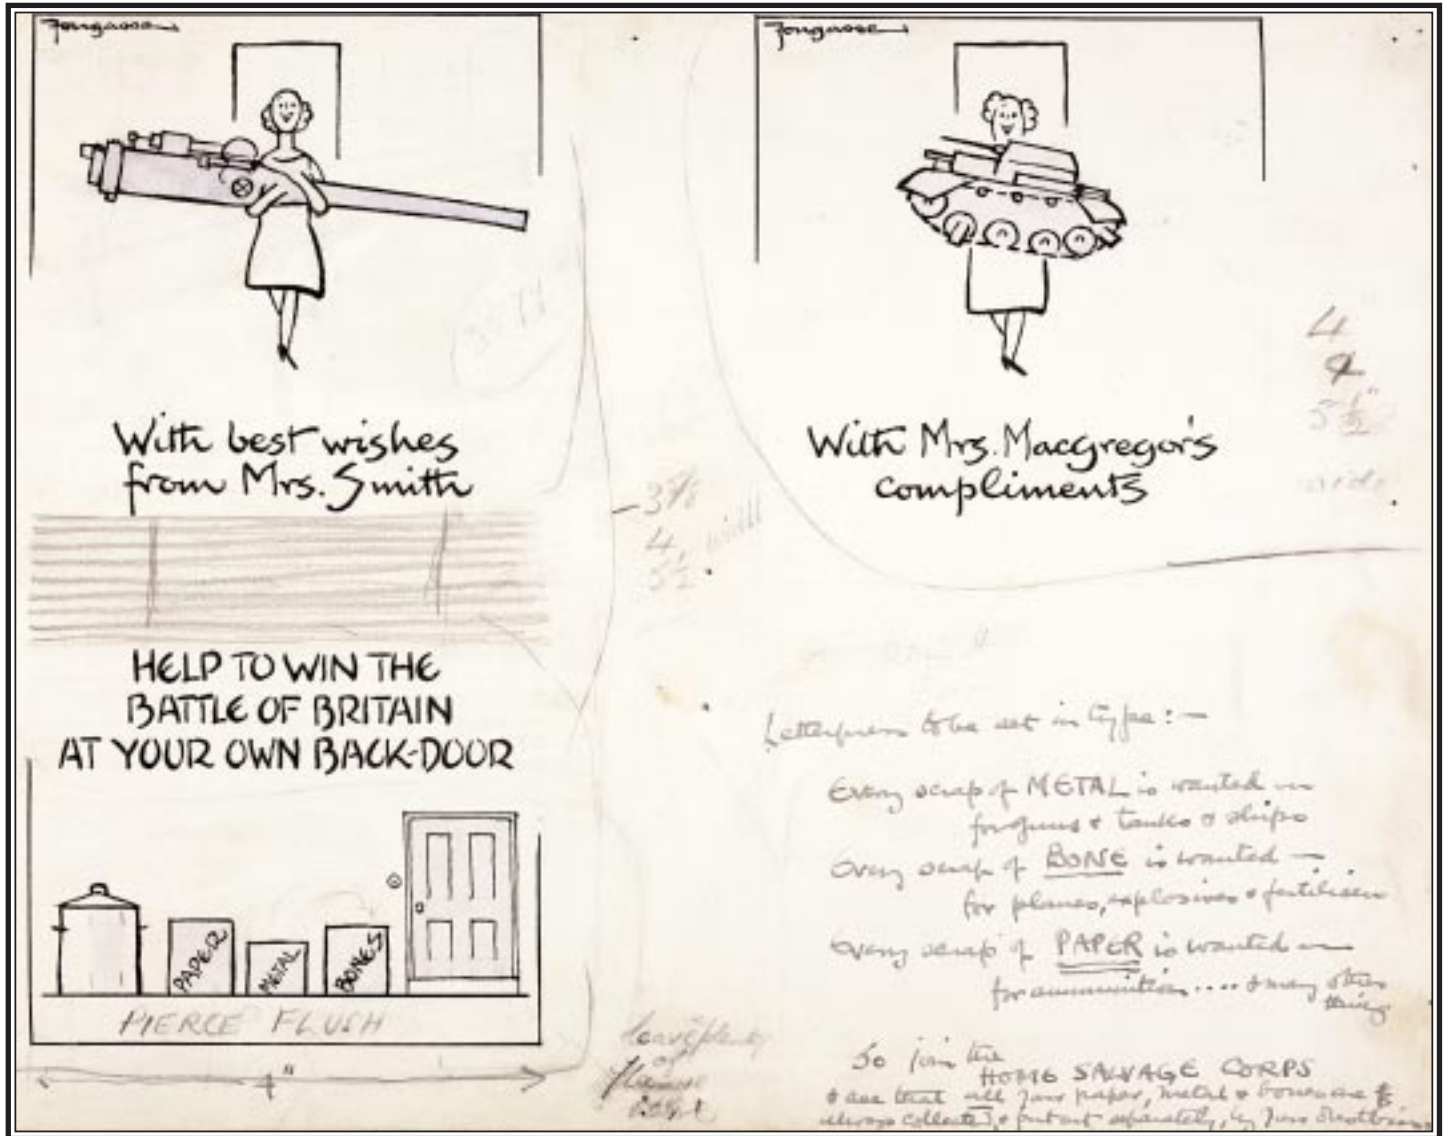 Fougasse
With best wishes
from Mrs. Smith
HELP TO WIN THE
BATTLE OF BRITAIN
AT YOUR OWN BACK-DOOR
PAPER
METAL
BONES
PIERCE FLUSH
4"
Fougasse
With Mrs. Macgregor's
compliments
4
5 1/2"
wide
3 5/8
4
5 1/2
width
Letterpress to be set in type:—
Every scrap of METAL is wanted —
for guns & tanks & ships
Every scrap of BONE is wanted —
for planes, explosives & fertilisers
Every scrap of PAPER is wanted —
for ammunition .... & many other
things
So join the
HOME SALVAGE CORPS
& see that all your paper, metal & bones are
always collected, & put out separately, by your dustbin
leave plenty
of